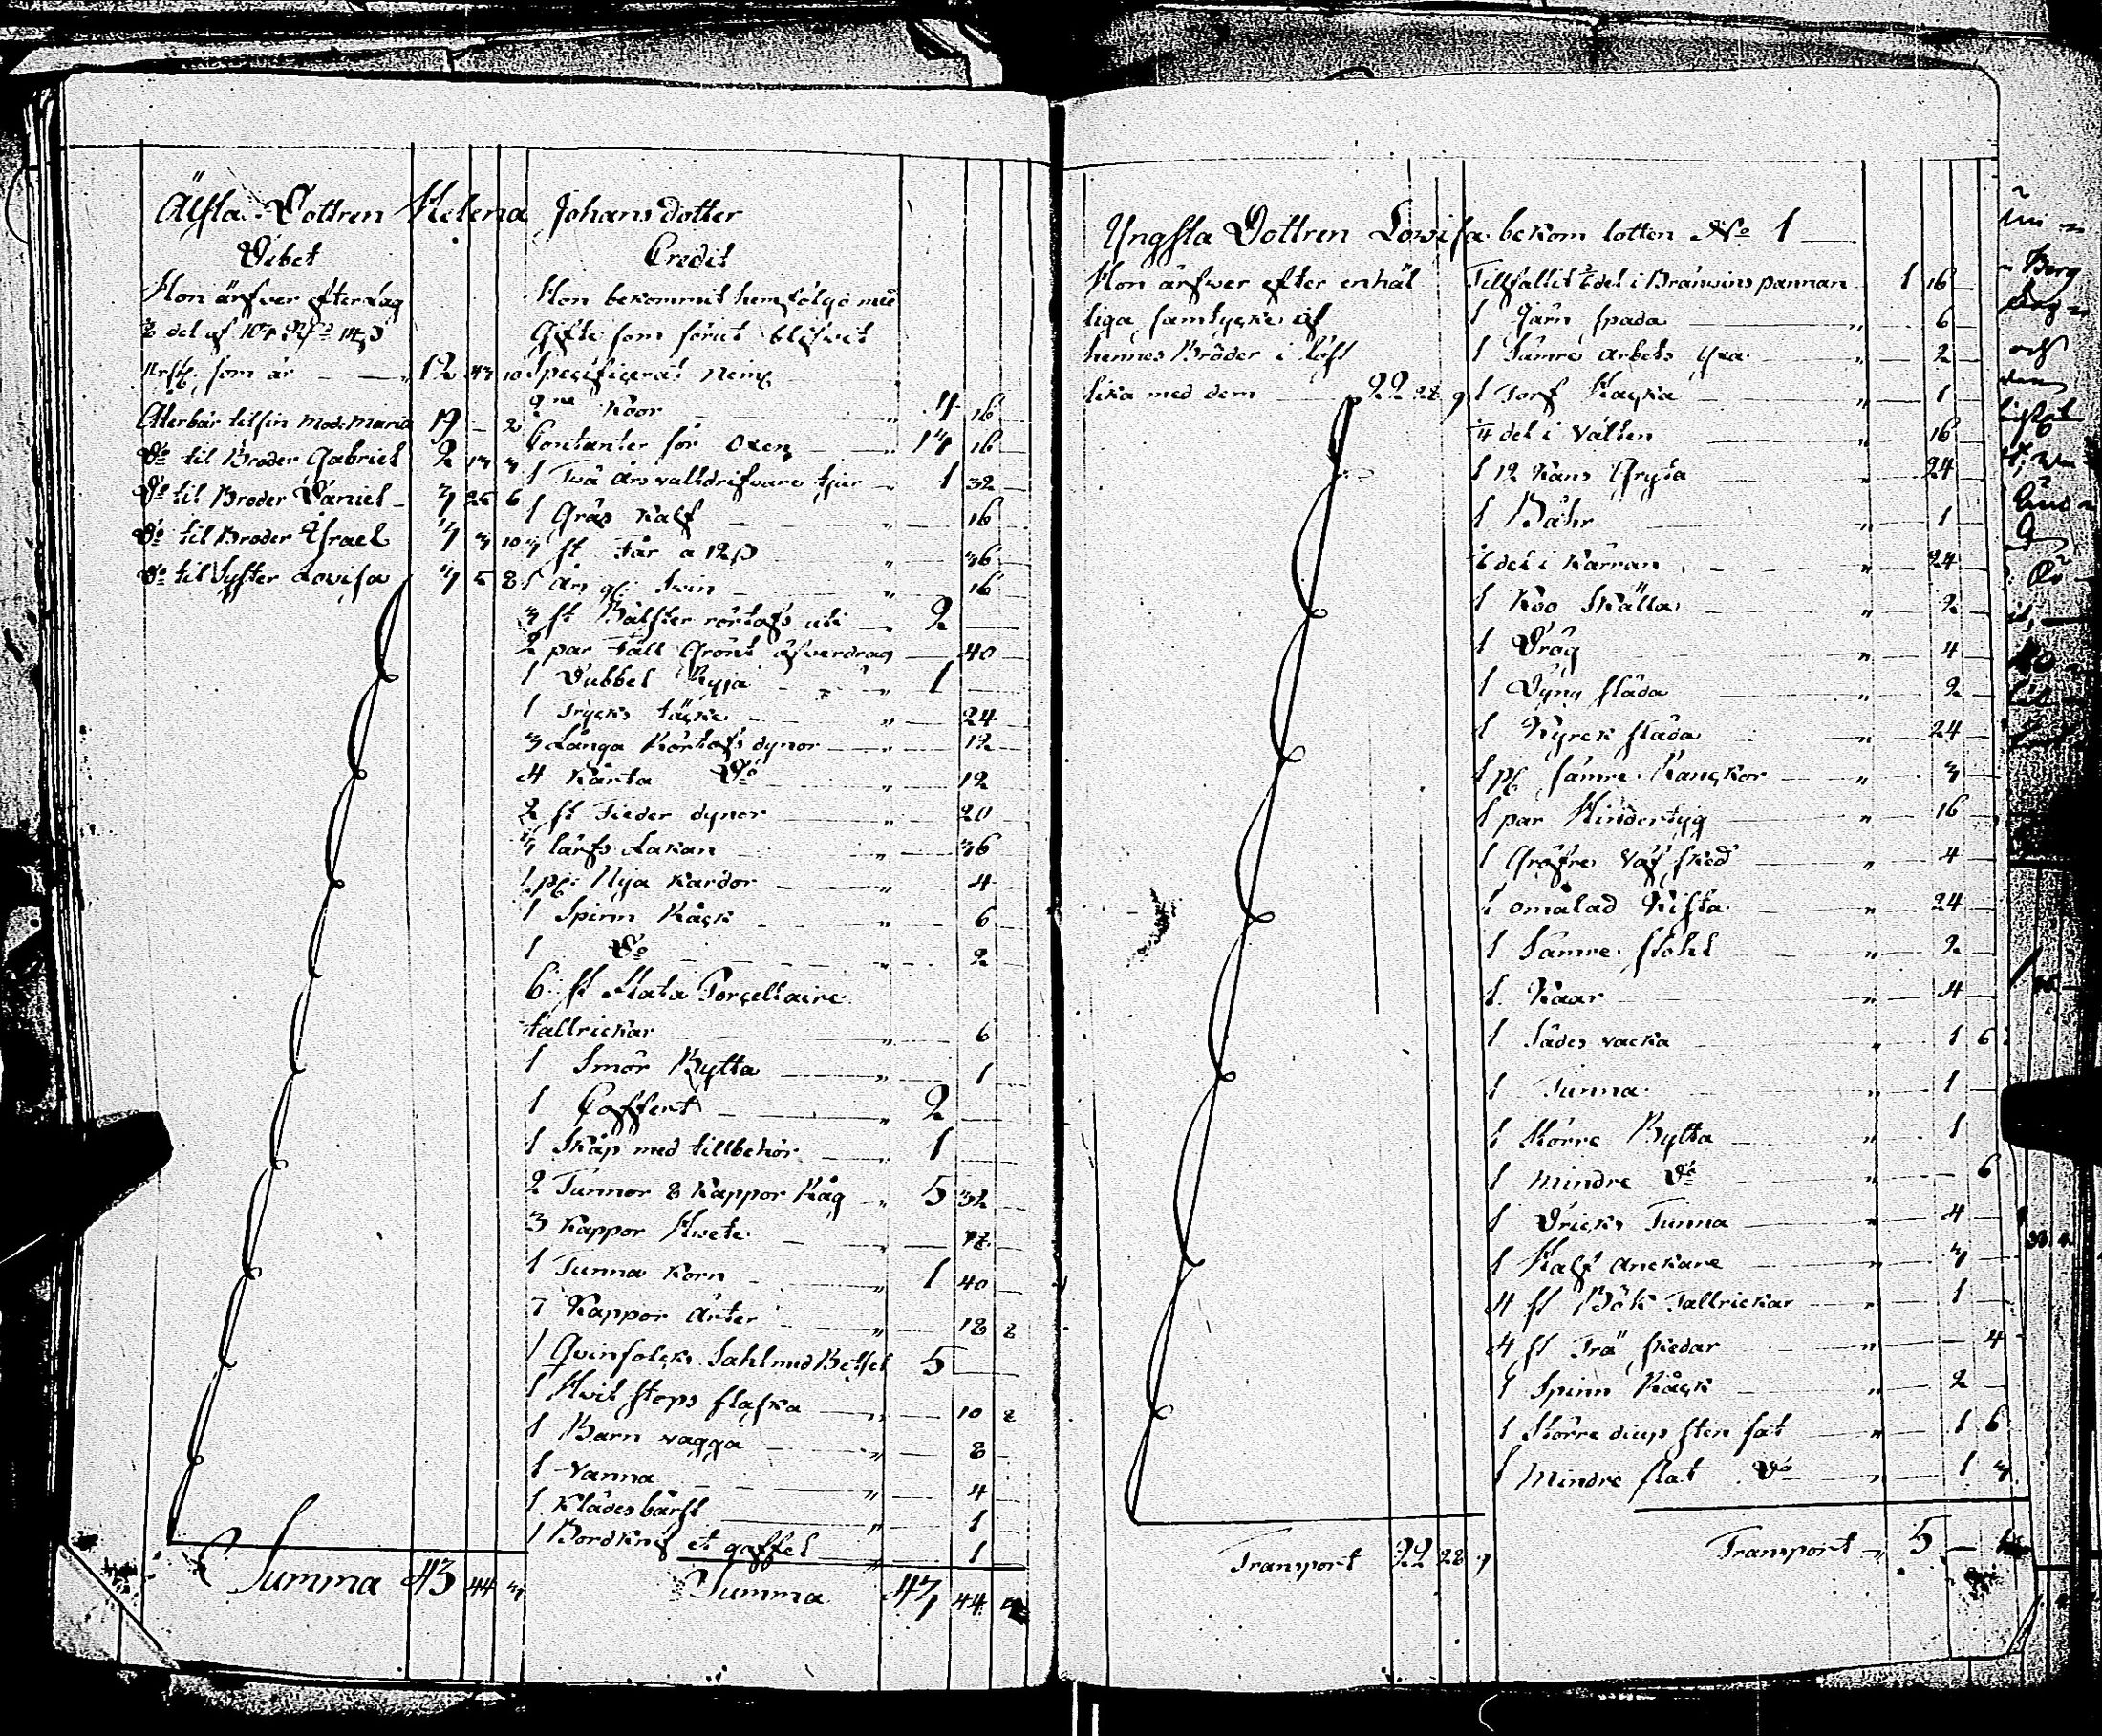 Älsta Dottren Helena Johansdotter
Debet
Hon ärfver efter Lag
1/6 del af 107 Rdr 14 ß
som är 12 43 10
Återbär til sin Mod. Maria 19 – 2
Do til Broder Gabriel 2 13 3
Do til Broder Daniel 3 25 6
Do til Broder Israel 3 3 10
Do til Syster Lovisa 3 5 8
Summa 43 44 3
Credit
Hon bekommit hemfölgd med
Gifte som förut blifvit
Specificerat
2ne Koor 16
Contanter för Oxen 16
1 Två års valldrifvare tjur 1 32
1 Gräs Kalf 16
3 st Får a 12 ß 36
1 Års gl. Svin 16
3 st Bolster 2
2 par Fäll Grönt öfverdrag 40
1 Dubbel Ryja 1
1 Trycks täcke 24
3 Långa dynor 12
4 Kårta Do 12
2 st Fieder dynor 20
3 lärfs Lakan 36
1 pr Nya Kardor 4
1 Spinn Råck 6
1 Do 2
6 st Flata Porcellaine
tallrickar 6
1 Smör Bytta 1
1 Coffert 2
1 Skåp med tillbehör 1
2 Tunnor 8 Kappor Råg 5 32
3 Kappor Hvete
1 Tunna Korn 1 40
7 Kappor Ärter 18 8
1 Qvinfolcks Sahl med Betsel 5
1 Hvit stops flaska 10 8
1 Barn vagga 8
1 Vanna 4
1 Klädesbårst 1
1 Bordknif et gaffel 1
Summa 43 44 3
Yngsta Dottren Lovisa bekom lotten No 1
Hon ärfwer efter enhäl
liga samtycke af
hennes Bröder i löst
lika med dem 22 28 9
Transport 22 28 9
Tillfallit 1/6 del i Bränvins pannan 1 16
1 Järn spada 6
1 Sämre arbets Yxa 2
1 Torf Hacka 1
1/4 del i Välten 16
1 12 Kans Gryta 24
1 Båhr 1
1/6 del i Kärran 24
1 Koo Skälla 2
1 Dråg 4
1 Dyng släda 2
1 Kyrck släda 24
1 pr sämre 3
1 par Hindertyg 16
1 Gröfre Väf sked 4
1 omålad Kista 24
1 Sämre stohl 2
1 Kaar 4
1 Sädes vacka 1 6
1 Tunna 1
1 Större Bytta 1
1 Mindre Do 6
1 Dricks Tunna 4
1 Half anckare 3
4 st Bök Tallrickar 1
4 st Trä skedar 4
1 Spinn Råck 2
1 Större diup sten fat 1 6
1 Mindre flat Do 1 3
Transport 5